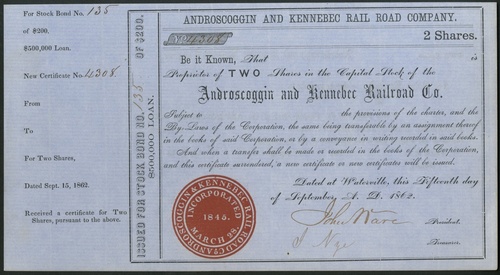 For Stock Bond No. 135
of $200.
$500,000 Loan.
New Certificate No. 4308
From
To
For Two Shares,
Dated Sept. 15, 1862.
Received a certificate for Two
Shares, pursuant to the above.
ISSUED FOR STOCK BOND NO. 135 OF $200.
$500,000 LOAN.
ANDROSCOGGIN AND KENNEBEC RAIL ROAD COMPANY.
No. 4308
2 Shares.
Be it Known, That is
Proprietor of TWO Shares in the Capital Stock of the
Androscoggin and Kennebec Railroad Co.
Subject to the provisions of the charter, and the
By-Laws of the Corporation, the same being transferable by an assignment thereof
in the books of said Corporation, or by a conveyance in writing recorded in said books.
And when a transfer shall be made or recorded in the books of the Corporation,
and this certificate surrendered, a new certificate or new certificates will be issued.
Dated at Waterville, this Fifteenth day
of September A. D. 1862.
ANDROSCOGGIN & KENNEBEC RAIL ROAD CO.
INCORPORATED
1845.
MARCH 28.
John Ware President.
J Nye Treasurer.